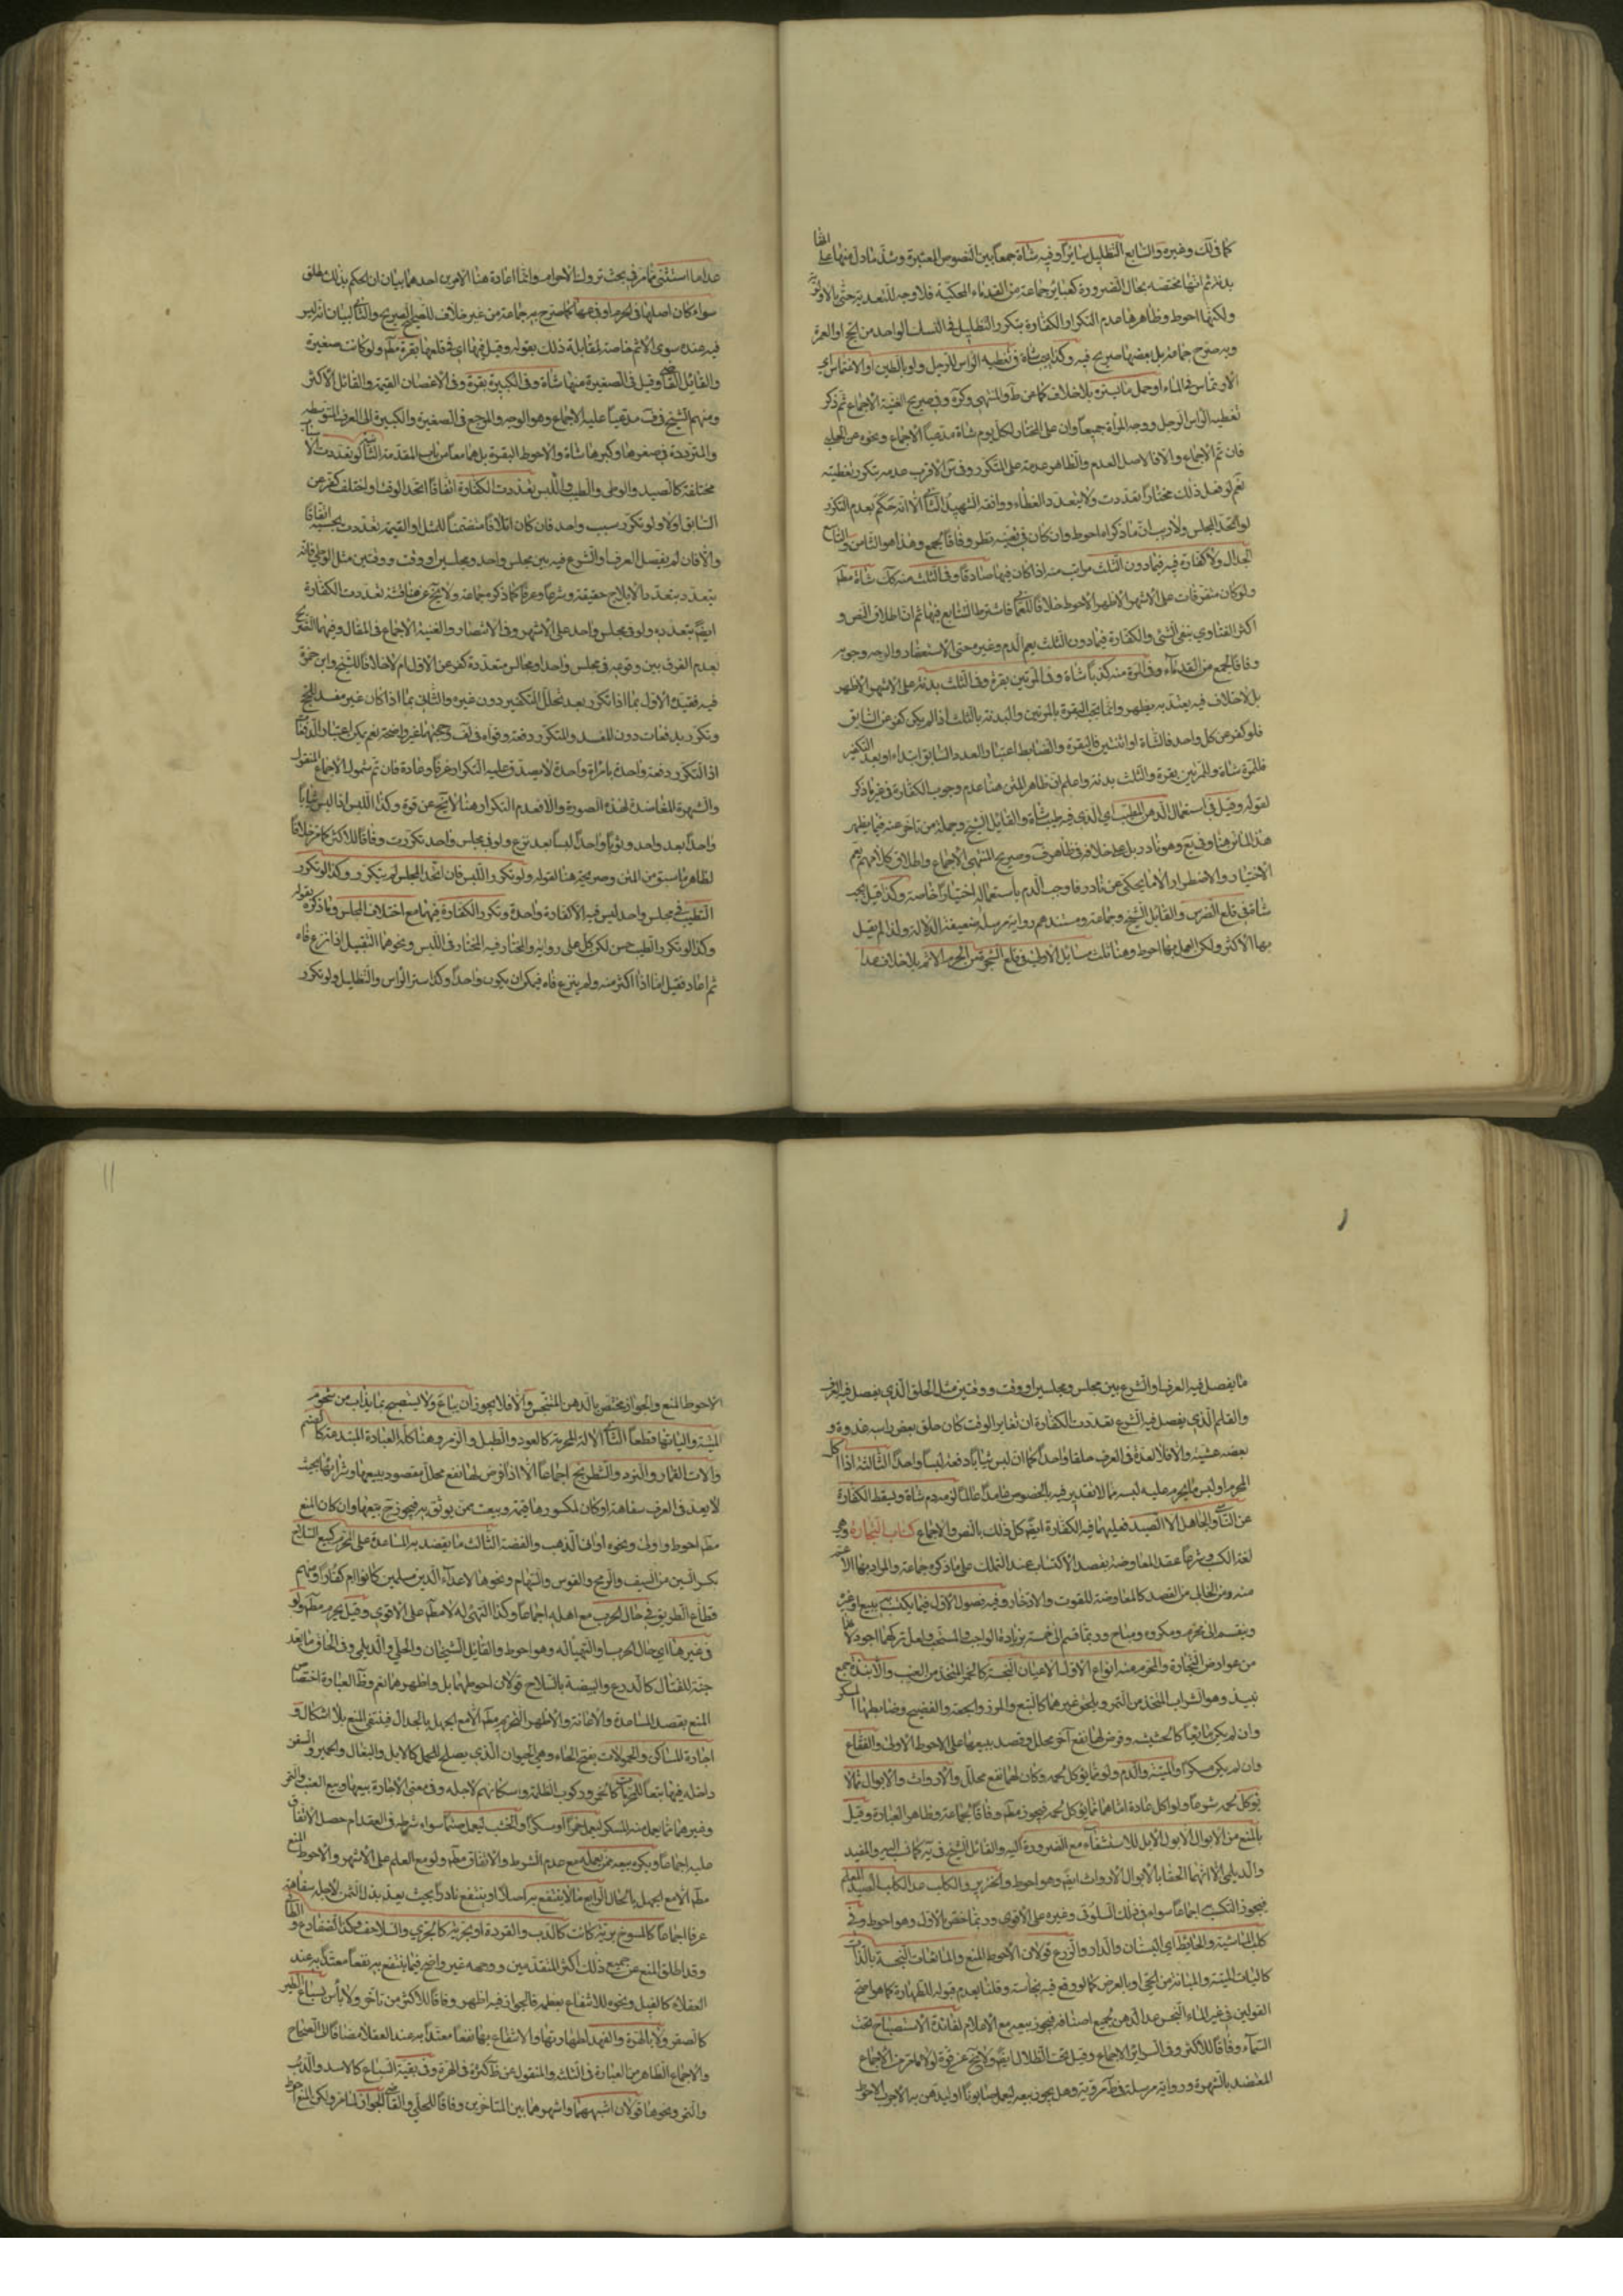 كما في لك وغيره والسابع التظليل سائرا وفيه شاة جمعا بين النصوص المعتبرة وشذ ما دل منها على
بدنة ثم انها مختصة بحال الضرورة كعبائر جماعة من القدماء المحكية فلا وجه للتعدية حتى بالاولوية
ولكنها احوط وظاهرها عدم التكرار الكفارة بتكرر التظليل في النسك الواحد من الحج او العمرة
وبه صرح جماعة بل بعضها صريح فيه وكذا يجب شاة في تغطية الراس للرجل ولو بالطين او الاغتماس في
الارتماس في الماء او حمل ما يستره بلا خلاف كما عن ط والمنتهى وكره وفي صريح الغنية الاجماع ثم ذكر
تغطية الراس الرجل ووجه المراة جميعا وان على المختار لكل يوم شاة مدعيا الاجماع ونحوه عن الحلبي
فان تم الاجماع والا فالاصل العدم والظاهر عدمه على المتكرر وفي س الاقرب عدمه بتكرر تغطيته
نعم لو فعل ذلك مختارا تعددت ولا يتعدد الغطاء ووافقه الشهيد الثاني الا انه حكم بعدم التكرر
لو اتحد المجلس ولا ريب ان ما ذكراه احوط وان كان في تعينه نظر وفاقا لجمع وهذا هو الثامن والتاسع
الجدال ولا كفارة فيه فيما دون الثلث مراتب منه اذا كان فيها صادقا وفي الثلث منه كك شاة مطم
ولو كان متفرقات على الاشهر الاظهر الاحوط خلافا للعماني فاشترط التتابع فيها ثم ان اطلاق النص و
اكثر الفتاوي بنفي الشئ والكفارة فيما دون الثلث يعم الدم وغيره حتى الاستغفار والوجه وجوبه
وفاقا لجمع من القدماء وفي المرة منه كذبا شاة وفي المرتين بقرة وفي الثلث بدنة على الاشهر الاظهر
بل لا خلاف فيه يعتد به يظهر وانما يجب البقرة بالمرتين والبدنة بالثلث اذا لم يكن كفر عن السابق
فلو كفر عن كل واحد فالشاة او اثنتين فالبقرة والضابط اعتبار العدد السابق ابتداء او بعد التكفير
فللمرة شاة وللمرتين بقرة والثلث بدنة واعلم ان ظاهر المتن هنا عدم وجوب الكفارة في غير ما ذكر
لقوله وقيل في استعمال الدهن الطيب اي الذي فيه طيب شاة والقائل الشيخ وجملة من تاخر عنه فيما يظهر
هذا الماتن هنا وفي يع وهو نادر بل على خلافه في ظاهر ف وصريح المنتهى الاجماع واطلاق كلامهم يعم
الاختيار والاضطرار الا ما يحكى عن نادر فاوجب الدم باستعماله اختيارا خاصة وكذا قيل يجب
شاة في قلع الضرس والقائل الشيخ وجماعة ومستندهم رواية مرسلة ضعيفة الدلالة ولذا لم يقل
بها الاكثر ولكن العمل بها احوط وهنا ثلث مسائل الاولى في قلع الشجرة من الحرم الاثم بلا خلاف عدا
عدا ما استثني مما مر في بحث تروك الاحرام وانما اعادة هنا الامرين احدهما بيان ان الحكم بذلك مطلق
سواء كان اصلها في الحرم او فرعها كما صرح به جماعة من غير خلاف للصحيح الصريح والثاني لبيان انه ليس
فيه عنده سوى الاثم خاصة لمقابلة ذلك بقوله وقيل فيها اي في قلعها بقرة مطم ولو كانت صغيرة
والقائل القاضي وقيل في الصغيرة منها شاة وفي الكبيرة بقرة وفي الاغصان القيمة والقائل الاكثر
ومنهم الشيخ في ف مدعيا عليه الاجماع وهو الوجه والمرجع في الصغيرة والكبيرة الى العرف
والمترددة في صغرها وكبرها شاة والاحوط البقرة بل هما معا من باب المقدمة الثانية لو تعددت الاسباب
مختلفة كالصيد والوطي والطيب واللبس تعددت الكفارة اتفاقا اتحد الوقت او اختلف كفر عن
السابق اولا ولو تكرر سبب واحد فان كان اتلافا متضمنا للمثل او القيمة تعددت بحسبه اتفاقا
والا فان لم يفصل العرف او الشرع فيه بين مجلس واحد ومجلسين او وقت ووقتين مثل الوطي فانه
يتعدد بتعدد الايلاج حقيقة وشرعا وعرفا كما ذكره جماعة ولا يخ عن مناقشة تعددت الكفارة
ايضا بتعدده ولو في مجلس واحد على الاشهر وفي الانتصار والغنية الاجماع في المقال وفيهما التصريح
بعدم الفرق بين وقوعه في مجلس واحد او مجالس متعددة كفر عن الاول ام لا خلافا للشيخ وابن حمزة
فيه فقيده الاول بما اذا تكرر بعد تخلل التكفير دون غيره والثاني بما اذا كان غير مفسد للحج
وتكرر بدفعات دون المفسد والمتكرر دفعة وقواه في لف وحجتهما غير واضحة نعم يمكن اعتبار الدفعات
اذا لتكرر دفعة واحدة بامراة واحدة لا يصدق عليه التكرار عرفا وعادة فان تم شمول الاجماع المنقول
والشهرة المعاضدة لهذه الصورة والا فعدم التكرار هنا لا يخ عن قوة وكذا اللبس اذا لبس ثيابا
واحدا بعد واحد وثوبا واحدا لبسا بعد نزع ولو في مجلس واحد تكررت وفاقا للاكثر كما مر خلافا
لظاهر ما سبق من المتن وصريحه هنا لقوله ولو تكرر اللبس فان اتحد المجلس لم يتكرر وكذا لو تكرر
التطيب في مجلس واحد ليس فيه الا كفارة واحدة وتكرر الكفارة فيهما مع اختلاف المجلس وما ذكره بقوله
وكذا لو تكرر الطيب حسن لكن كل على روايه والمختار فيه المختار في اللبس ونحوهما التقبيل اذا نزع فاه
ثم اعاد فقبل اما اذا اكثر منه ولم ينزع فاه فيمكن ان يكون واحدا وكذا ستر الراس والتظليل ولو تكرر
ما يفصل فيه العرف او الشرع بين مجلس ومجلسين او وقت ووقتين مثل الحلق الذي يفصل فيه العرف
والقلم الذي يفصل فيه الشرع تعددت الكفارة ان تغاير الوقت كان حلق بعض راسه غدوة و
بعضه عشية والا فلا لعده في العرف حلقا واحدا كما ان لبس ثيابا دفعة لبسا واحدا الثالثة اذا اكل
المحرم او لبس ما يحرم عليه لبسه مما لا تقدير فيه بالخصوص عامدا عالما لزمه دم شاة ويسقط الكفارة
عن الناسي والجاهل الا الصيد فعليهما فيه الكفارة ايضا كل ذلك بالنص والاجماع كتاب التجارة وهي
لغة الكسب وشرعا عقد المعاوضة بقصد الاكتساب عند التملك على ما ذكره جماعة والمراد بها الاعم
منه ومن الخالي من القصد كالمعاوضة للقوت والادخار وفيه فصول الاول فيما يكتسب به ببيع او غيره
وينقسم الى محرم ومكروه ومباح وربما قسم الى خمسة بزيادة الواجب والمستحب ولعل تركهما اجود لانهما
من عوارض التجارة والمحرم منه انواع الاول الاعيان النجسة كالخمر المتخذ من العنب والانبذة جمع
نبيذ وهو الشراب المتخذ من التمر ويلحق غيرهما كالبتع والمرز والجعة والفضيخ وضابطها المسكر
وان لم يكن مايعا كالحشيشة وفرض لها نفع آخر محلل وقصد ببيعها على الاحوط الاولى والفقاع
وان لم يكن مسكرا والميتة والدم ولو مما يؤكل لحمه وكان لهما نفع محلل والارواث والابوال مما لا
يؤكل لحمه شرعا ولو اكل عادة اما هما مما يؤكل لحمه فيجوز مطم وفاقا لجماعة وظاهر العبارة وقيل
بالمنع من الابوال الا بول الابل للاستشفاء مع الضرورة اليه والقائل الشيخ في يه كما في السير والمفيد
والديلمي الا انهما الحقا بالابوال الارواث ايضا وهو احوط والخنزير والكلب عدا الكلب الصيد المعلم
فيجوز التكسب اجماعا سواء في ذلك السلوقي وغيره على الاقوى وربما خص الاول وهو احوط وفي
كلب الماشية والحايط اي البستان والدار والزرع قولان الاحوط المنع والمائعات النجسة بالذات
كاليات الميتة والمبانة من الحي او بالعرض كما لو وقع فيه نجاسة وقلنا بعدم قبوله للطهارة كما هو اصح
القولين في غير الماء النجس عدا الدهن بجميع اصنافه فيجوز بيعه مع الاعلام لفائدة الاستصباح تحت
السماء وفاقا للاكثر وفي السرائر الاجماع وقيل تحت الظلال ايضا ولا يخ عن قوة لولا ما مر من الاجماع
المعتضد بالشهرة ورواية مرسلة في ط مروية وهل يجوز بيعه ليعمل صابونا او ليدهن به الاجرب الاحوط
الاحوط المنع والجواز مختص بالدهن المتنجس والا فلا يجوز ان يباع ولا يستصبح بما يذاب من شحوم
الميتة والياتها قطعا الثاني الالة المحرمة كالعود والطبل والزمر وهياكل العبادة المبتدعة كالصنم
والات القمار والنرد والشطرنج اجماعا الا اذا فرض لها نفع محلل مقصود ببيعها وشرائها بحيث
لا يعد في العرف سفاهة او كان لمكسورها قيمة وبيعت ممن يوثق به فيجوز ح بيعها وان كان المنع
مطم احوط واولى ونحوه اواني الذهب والفضة الثالث ما يقصد به المساعدة على المحرم كبيع السلاح
بكسر السين من السيف والرمح والقوس والسهام ونحوها لاعداء الدين مسلمين كانوا ام كفارا ومنهم
قطاع الطريق في حال الحرب مع اهله اجماعا وكذا التهيؤ له لا مطم على الاقوى وقيل يحرم مطم ولو
في غيرها اي حال الحرب او التهيؤ له وهو احوط والقائل الشيخان والحلي والديلمي وفي الحاق ما يعد
جنة للقتال كالدرع والبيضة بالسلاح قولان احوطهما بل واظهرهما نعم وظ العبارة اختصاص
المنع بقصد المساعدة والاعانة والاظهر التحريم مطم الا مع الجهل بالجدال فينتفي المنع بلا اشكال و
اجارة المساكن والحمولات بفتح الحاء وهي الحيوان الذي يصلح للحمل كالابل والبغال والحمير والسفن
داخلة فيها تبعا للمحرمات كالخمر وركوب الظلمة واسكانهم لاجله وفي معنى الاجارة بيعها وبيع العنب والتمر
وغيرهما مما يعمل منه المسكر ليعمل خمرا او مسكرا والخشب ليعمل صنما سواء شرط في العقد ام حصل الاتفاق
عليه اجماعا ويكره بيعه ممن يعمله مع عدم الشرط والاتفاق مطم ولو مع العلم على الاشهر والاحوط المنع
مطم الا مع الجهل بالحال الرابع ما لا ينتفع به اصلا او ينتفع نادرا بحيث يعد بذل الثمن لاجله سفاهة
عرفا اجماعا كالمسوخ برية كانت كالدب والقردة او بحرية كالجري والسلاحف وكذا الضفادع و
وقد اطلق المنع عن جميع ذلك اكثر المتقدمين ووجهه غير واضح فيما ينتفع به نفعا معتدا به عند
العقلاء كالفيل ونحوه للانتفاع بعظمه فالجواز فيه اظهر وفاقا للاكثر من تاخر ولا باس بسباع الطير
كالصقر ولا بالهرة والفهد لطهارتها والانتفاع بها نفعا معتدا به عند العقلاء مضافا الى الصحاح
والاجماع الظاهر من العبارة في الثلث والمنقول عن ظ التذكرة في الهرة وفي بقية السباع كالاسد والذئب
والنمر ونحوها قولان اشبههما واشهرهما بين المتاخرين وفاقا للحلي والقاضي الجواز لما مر ولكن المنع احوط